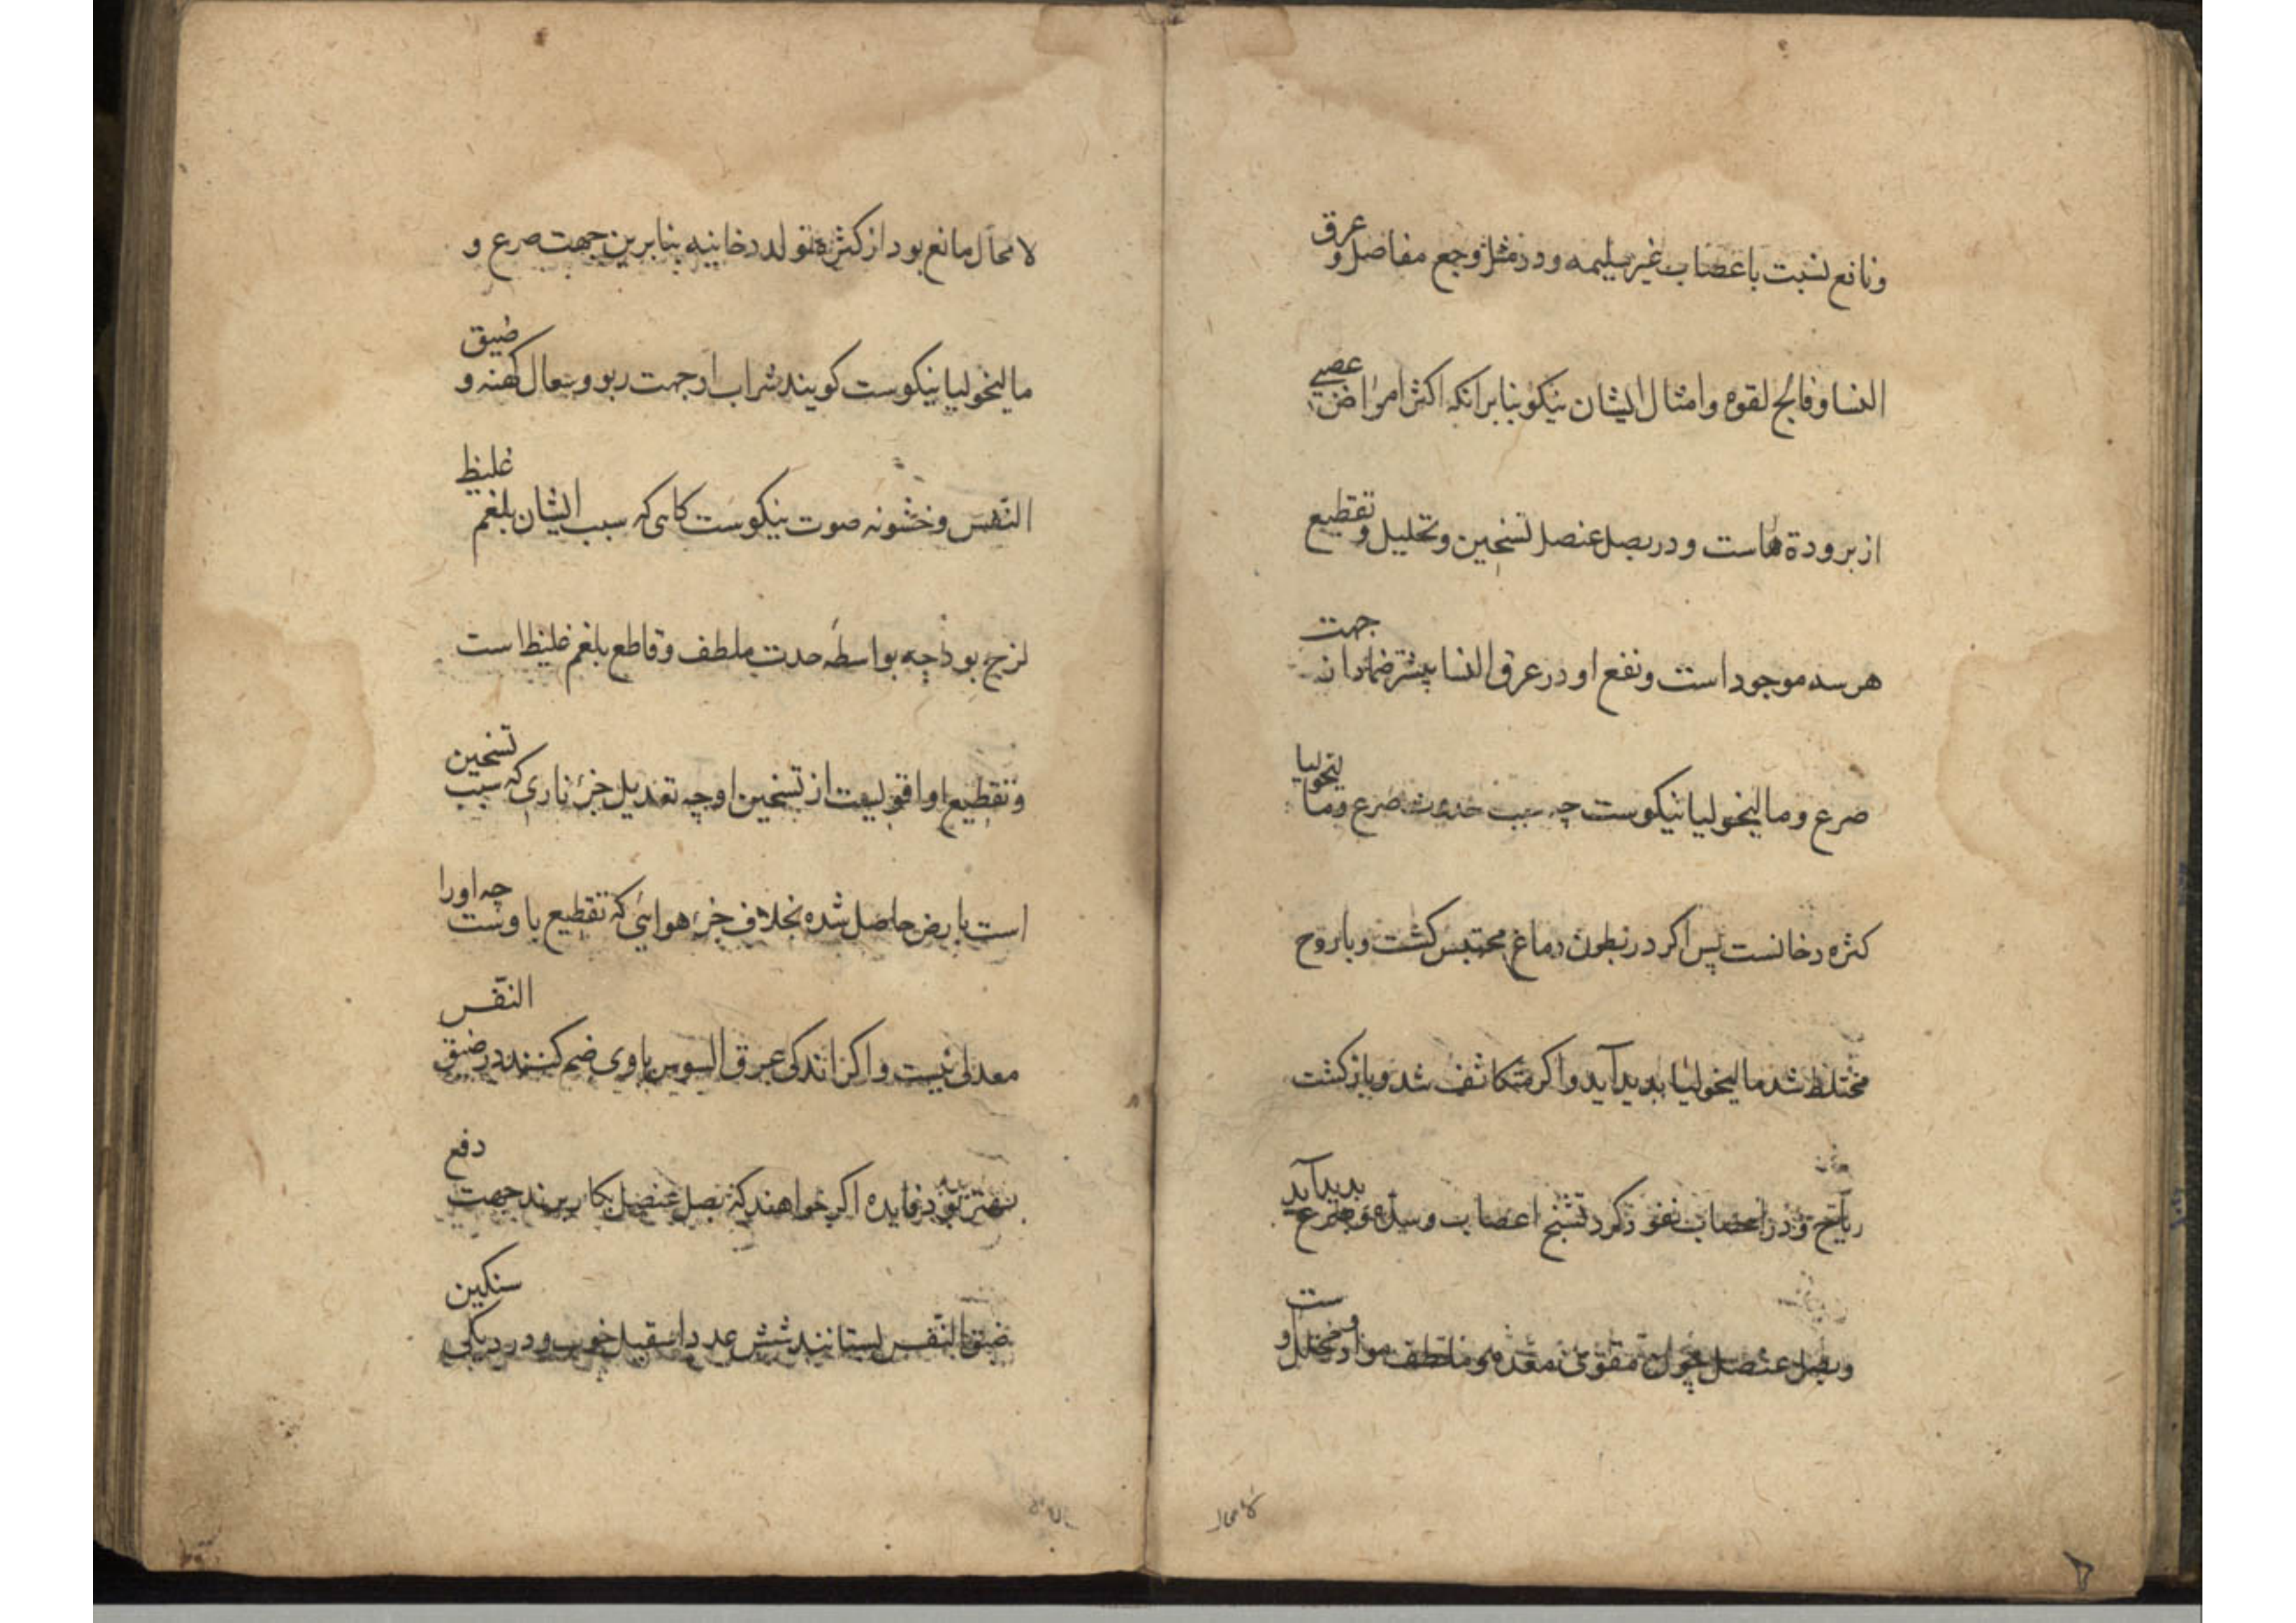 و نافع نسبت باعصاب غیر سلیمه و در مثل وجع مفاصل و عرق
النسا و فالج لقوه و امثال ایشان نیکو بنابرانکه اکثر امراض عصبی
از برودة هاست و در بصل عنصل تسخین و تحلیل و تقطیع
هر سه موجود است و نفع او در عرق النسا بیشتر ضمادا نه جهت
صرع و مالیخولیا نیکوست چه سبب حدوث صرع و مالیخولیا
کثره دخانست پس اکر در بطون دماغ محتبس کشت و با روح
مختلط شد مالیخولیا بدید آید و اکر متکاثف شد و باز کشت
ریاح و در اعصاب نفوذ کرد تشنج اعصاب و صرع بدید آید
و بصل عنصل چون مقوی معده و ملطف مواد و محلل و ست
لا محال
لا محال مانع بود از کثرة تولد دخانیه بنابرین جهت صرع و
مالیخولیا نیکوست کویند شراب او جهت ربو و سعال کهنه و ضیق
النفس و خشونه صوت نیکوست کاهی که سبب ایشان بلغم غلیظ
لزج بود چه بواسطه حدت ملطف و قاطع بلغم غلیظ است
و تقطیع او اقویست از تسخین او چه تعدیل جزء ناری که سبب تسخین
است بارض حاصل شده بخلاف جزء هوایی که تقطیع باوست چه او را
معدلی نیست و اکر اندکی عرق السوس باوی ضم کنند در ضیق النفس
بهتر بود فایده اکر خواهند که بصل عنصل بکار برند جهت دفع
ضیق النفس بستانند شش عدد اسقیل خوب و در دیکی سنکین